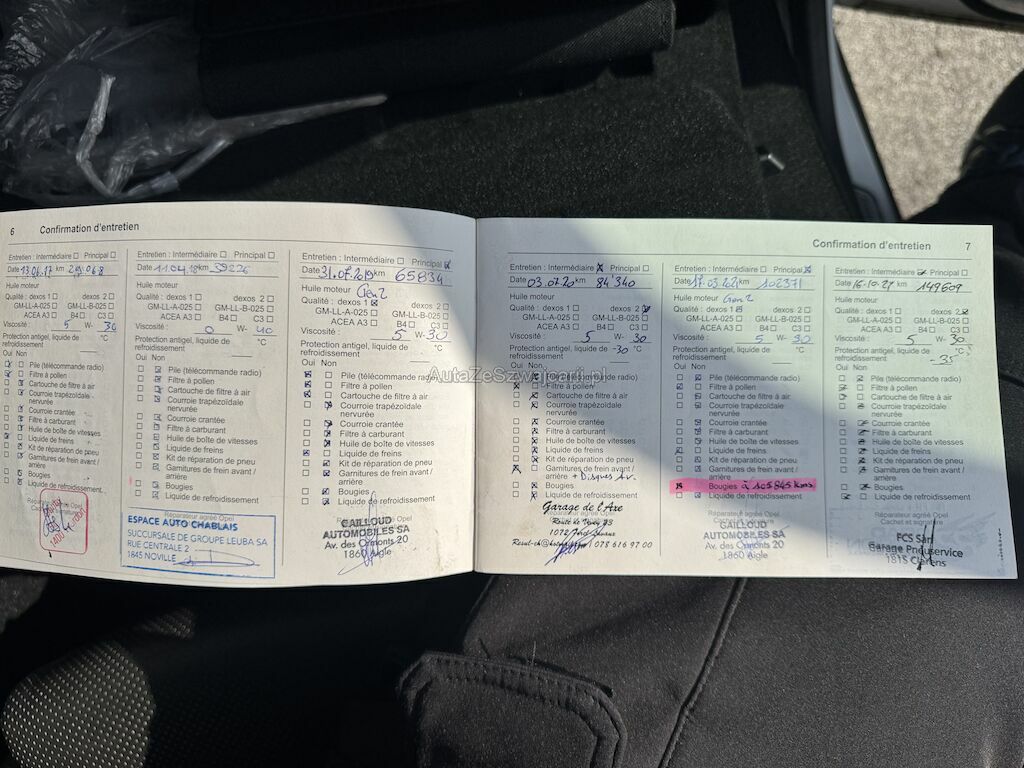 6 Confirmation d'entretien
Entretien : Intermédiaire Principal
Date 13.06.17 km
Huile moteur
Qualité : dexos 1 dexos 2
GM-LL-A-025 GM-LL-B-025
ACEA A3 B4 C3
Viscosité : 5 W- 30
Protection antigel, liquide de refroidissement °C
Oui Non
Pile (télécommande radio)
Filtre à pollen
Cartouche de filtre à air
Courroie trapézoïdale
nervurée
Courroie crantée
Filtre à carburant
Huile de boîte de vitesses
Liquide de freins
Kit de réparation de pneu
Garnitures de frein avant /
arrière
Bougies
Liquide de refroidissement
Réparateur agréé Opel
Cachet et signature
Entretien : Intermédiaire Principal
Date 11.04.18 km 39226
Huile moteur
Qualité : dexos 1 dexos 2
GM-LL-A-025 GM-LL-B-025
ACEA A3 B4 C3
Viscosité : 0 W- 40
Protection antigel, liquide de refroidissement °C
Oui Non
Pile (télécommande radio)
Filtre à pollen
Cartouche de filtre à air
Courroie trapézoïdale
nervurée
Courroie crantée
Filtre à carburant
Huile de boîte de vitesses
Liquide de freins
Kit de réparation de pneu
Garnitures de frein avant /
arrière
Bougies
Liquide de refroidissement
Réparateur agréé Opel
ESPACE AUTO CHABLAIS
SUCCURSALE DE GROUPE LEUBA SA
RUE CENTRALE 2
1845 NOVILLE
Entretien : Intermédiaire Principal
Date 31.07.2019 km 65834
Huile moteur Gen2
Qualité : dexos 1 dexos 2
GM-LL-A-025 GM-LL-B-025
ACEA A3 B4 C3
Viscosité : 5 W- 30
Protection antigel, liquide de
refroidissement °C
Oui Non
Pile (télécommande radio)
Filtre à pollen
Cartouche de filtre à air
Courroie trapézoïdale
nervurée
Courroie crantée
Filtre à carburant
Huile de boîte de vitesses
Liquide de freins
Kit de réparation de pneu
Garnitures de frein avant /
arrière
Bougies
Liquide de refroidissement
Réparateur agréé Opel
GAILLOUD
AUTOMOBILES SA
Av. des Ormonts 20
1860 Aigle
AutaZeSzwajcarii.pl
Confirmation d'entretien 7
Entretien : Intermédiaire Principal
Date 03.07.20 km 84'340
Huile moteur
Qualité : dexos 1 dexos 2
GM-LL-A-025 GM-LL-B-025
ACEA A3 B4 C3
Viscosité : 5 W- 30
Protection antigel, liquide de -30 °C
refroidissement
Oui Non
Pile (télécommande radio)
Filtre à pollen
Cartouche de filtre à air
Courroie trapézoïdale
nervurée
Courroie crantée
Filtre à carburant
Huile de boîte de vitesses
Liquide de freins
Kit de réparation de pneu
Garnitures de frein avant /
arrière + Disques Av.
Bougies
Liquide de refroidissement
Réparateur agréé Opel
Garage de l'Axe
Route de Vevey 93
1072
078 616 97 00
Entretien : Intermédiaire Principal
Date 17.03.2021 km 102371
Huile moteur Gen2
Qualité : dexos 1 dexos 2
GM-LL-A-025 GM-LL-B-025
ACEA A3 B4 C3
Viscosité : 5 W- 30
Protection antigel, liquide de °C
refroidissement
Oui Non
Pile (télécommande radio)
Filtre à pollen
Cartouche de filtre à air
Courroie trapézoïdale
nervurée
Courroie crantée
Filtre à carburant
Huile de boîte de vitesses
Liquide de freins
Kit de réparation de pneu
Garnitures de frein avant /
arrière
Bougies à 105845 kms
Liquide de refroidissement
Réparateur agréé Opel
Cachet et signature
GAILLOUD
AUTOMOBILES SA
Av. des Ormonts 20
1860 Aigle
Entretien : Intermédiaire Principal
Date km 149609
Huile moteur
Qualité : dexos 1 dexos 2
GM-LL-A-025 GM-LL-B-025
ACEA A3 B4 C3
Viscosité : 5 W- 30
Protection antigel, liquide de °C
refroidissement -35
Oui Non
Pile (télécommande radio)
Filtre à pollen
Cartouche de filtre à air
Courroie trapézoïdale
nervurée
Courroie crantée
Filtre à carburant
Huile de boîte de vitesses
Liquide de freins
Kit de réparation de pneu
Garnitures de frein avant /
arrière
Bougies
Liquide de refroidissement
Réparateur agréé Opel
Cachet et signature
FCS Sàrl
Garage Pneuservice
1815 Clarens